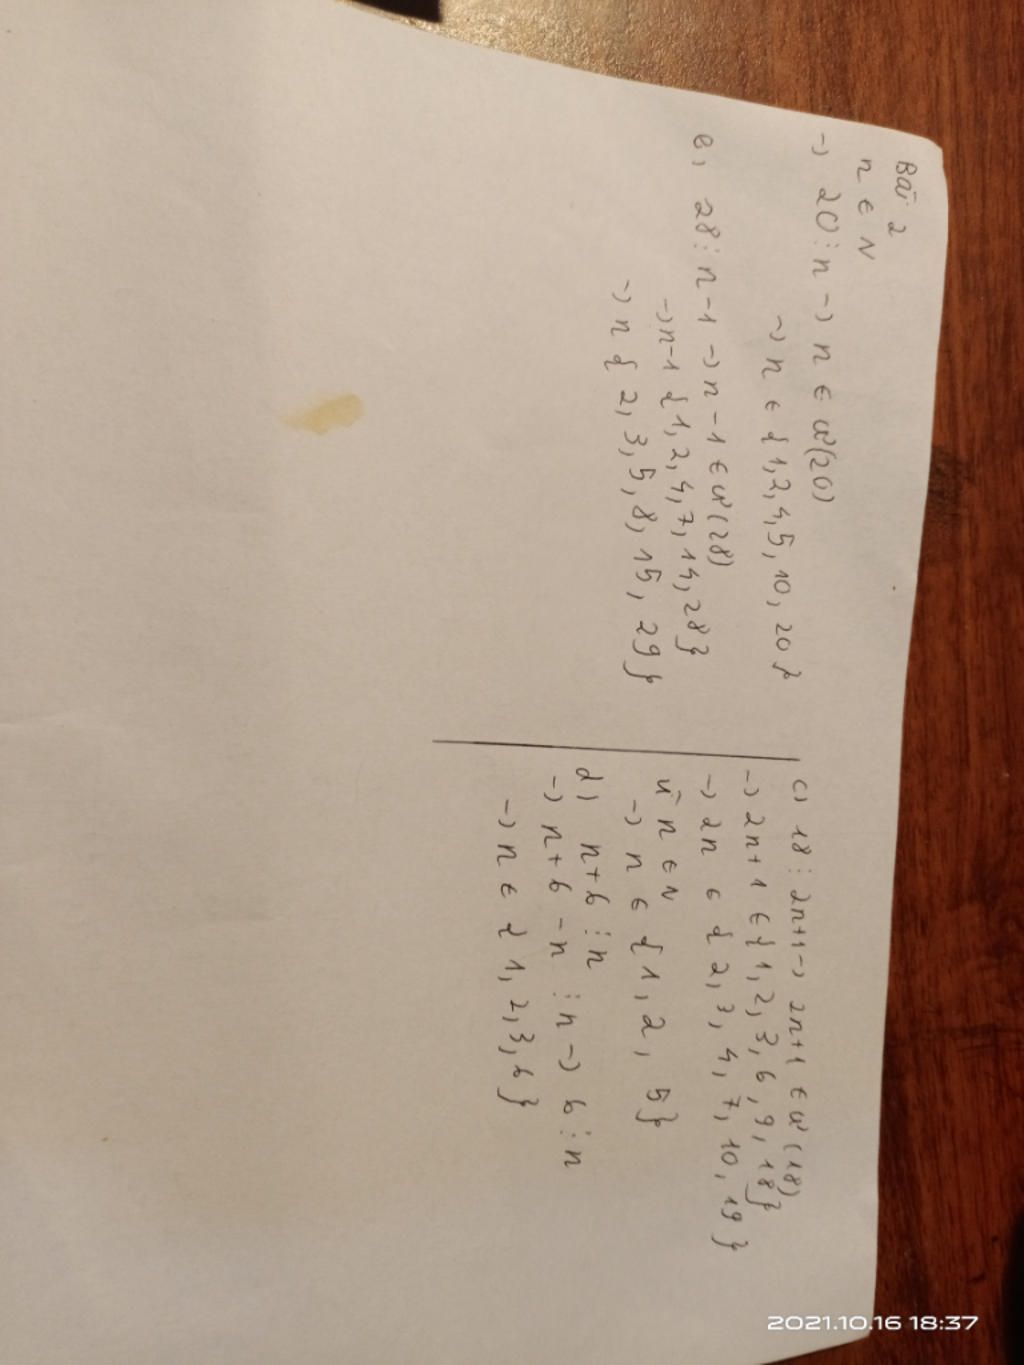 Bài 2
n ∈ N
→ 20 ⋮ n → n ∈ Ư(20)
→ n ∈ {1,2,4,5,10,20}
b, 28 ⋮ n-1 → n-1 ∈ Ư(28)
→ n-1 {1,2,4,7,14,28}
→ n { 2, 3, 5, 8, 15, 29}
c) 18 ⋮ 2n+1 → 2n+1 ∈ Ư(18)
→ 2n+1 ∈ {1, 2, 3, 6, 9, 18}
→ 2n ∈ { 2, 3, 4, 7, 10, 19}
vì n ∈ N
→ n ∈ {1, 2, 5}
d, n+6 ⋮ n
→ n+6 - n ⋮ n → 6 ⋮ n
→ n ∈ {1, 2, 3, 6}
2021.10.16 18:37